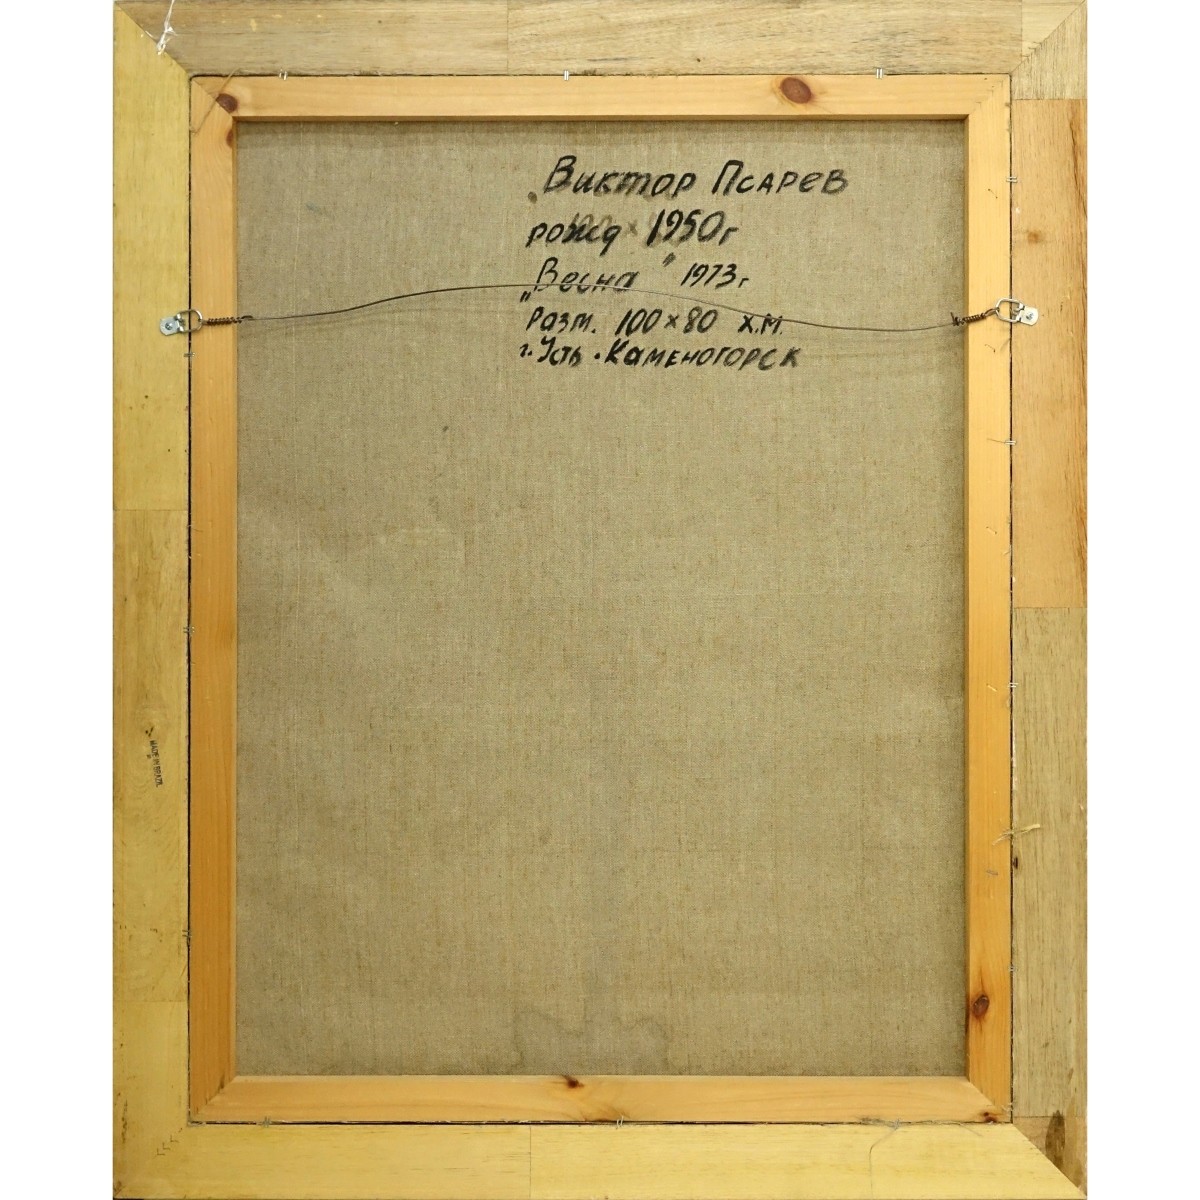 Виктор Псарев
рожд 1950г
"Весна" 1973г
Разм. 100×80 х.м.
г. Усть-Каменогорск
MADE IN BRAZIL